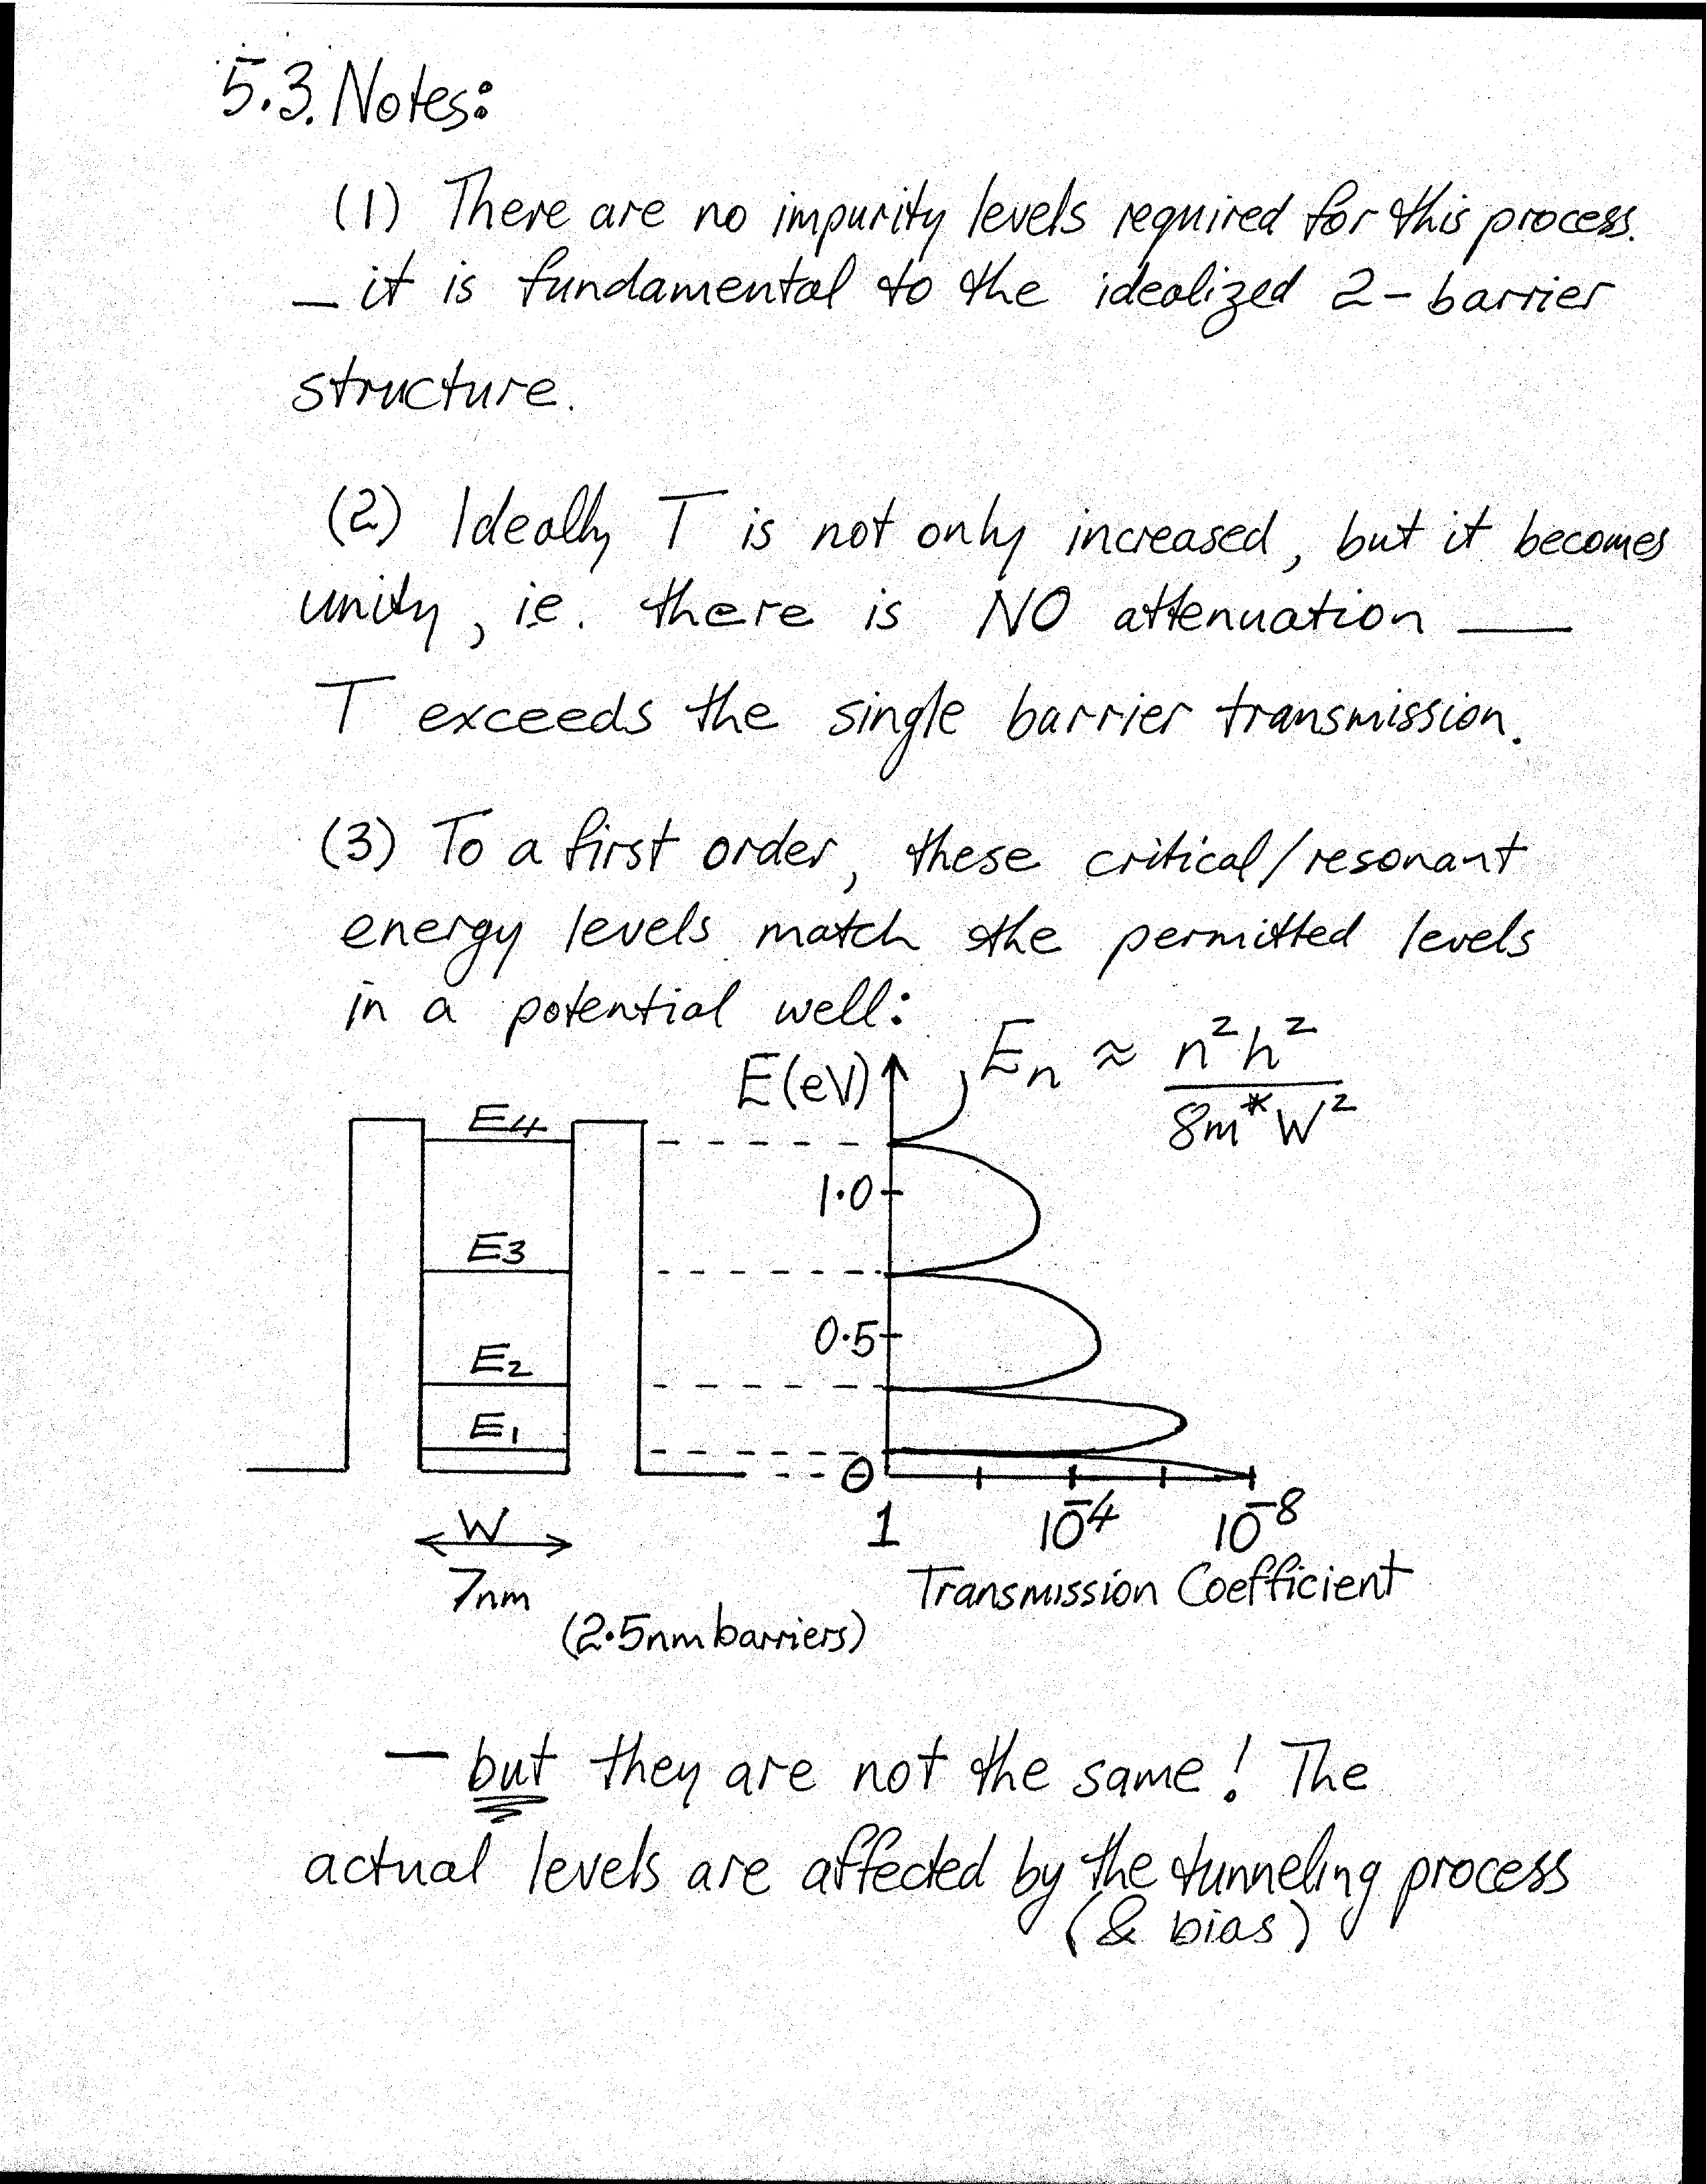 5.3. Notes:
(1) There are no impurity levels required for this process.
— it is fundamental to the idealized 2-barrier
structure.
(2) Ideally T is not only increased, but it becomes
unity, ie. there is NO attenuation —
T exceeds the single barrier transmission.
(3) To a first order, these critical/resonant
energy levels match the permitted levels
in a potential well:
E(eV)
En ≈ n²h² / 8m*W²
E4
1.0
E3
0.5
E2
E1
0
1 10⁻⁴ 10⁻⁸
W
7nm
Transmission Coefficient
(2.5nm barriers)
— but they are not the same! The
actual levels are affected by the tunneling process
(& bias)